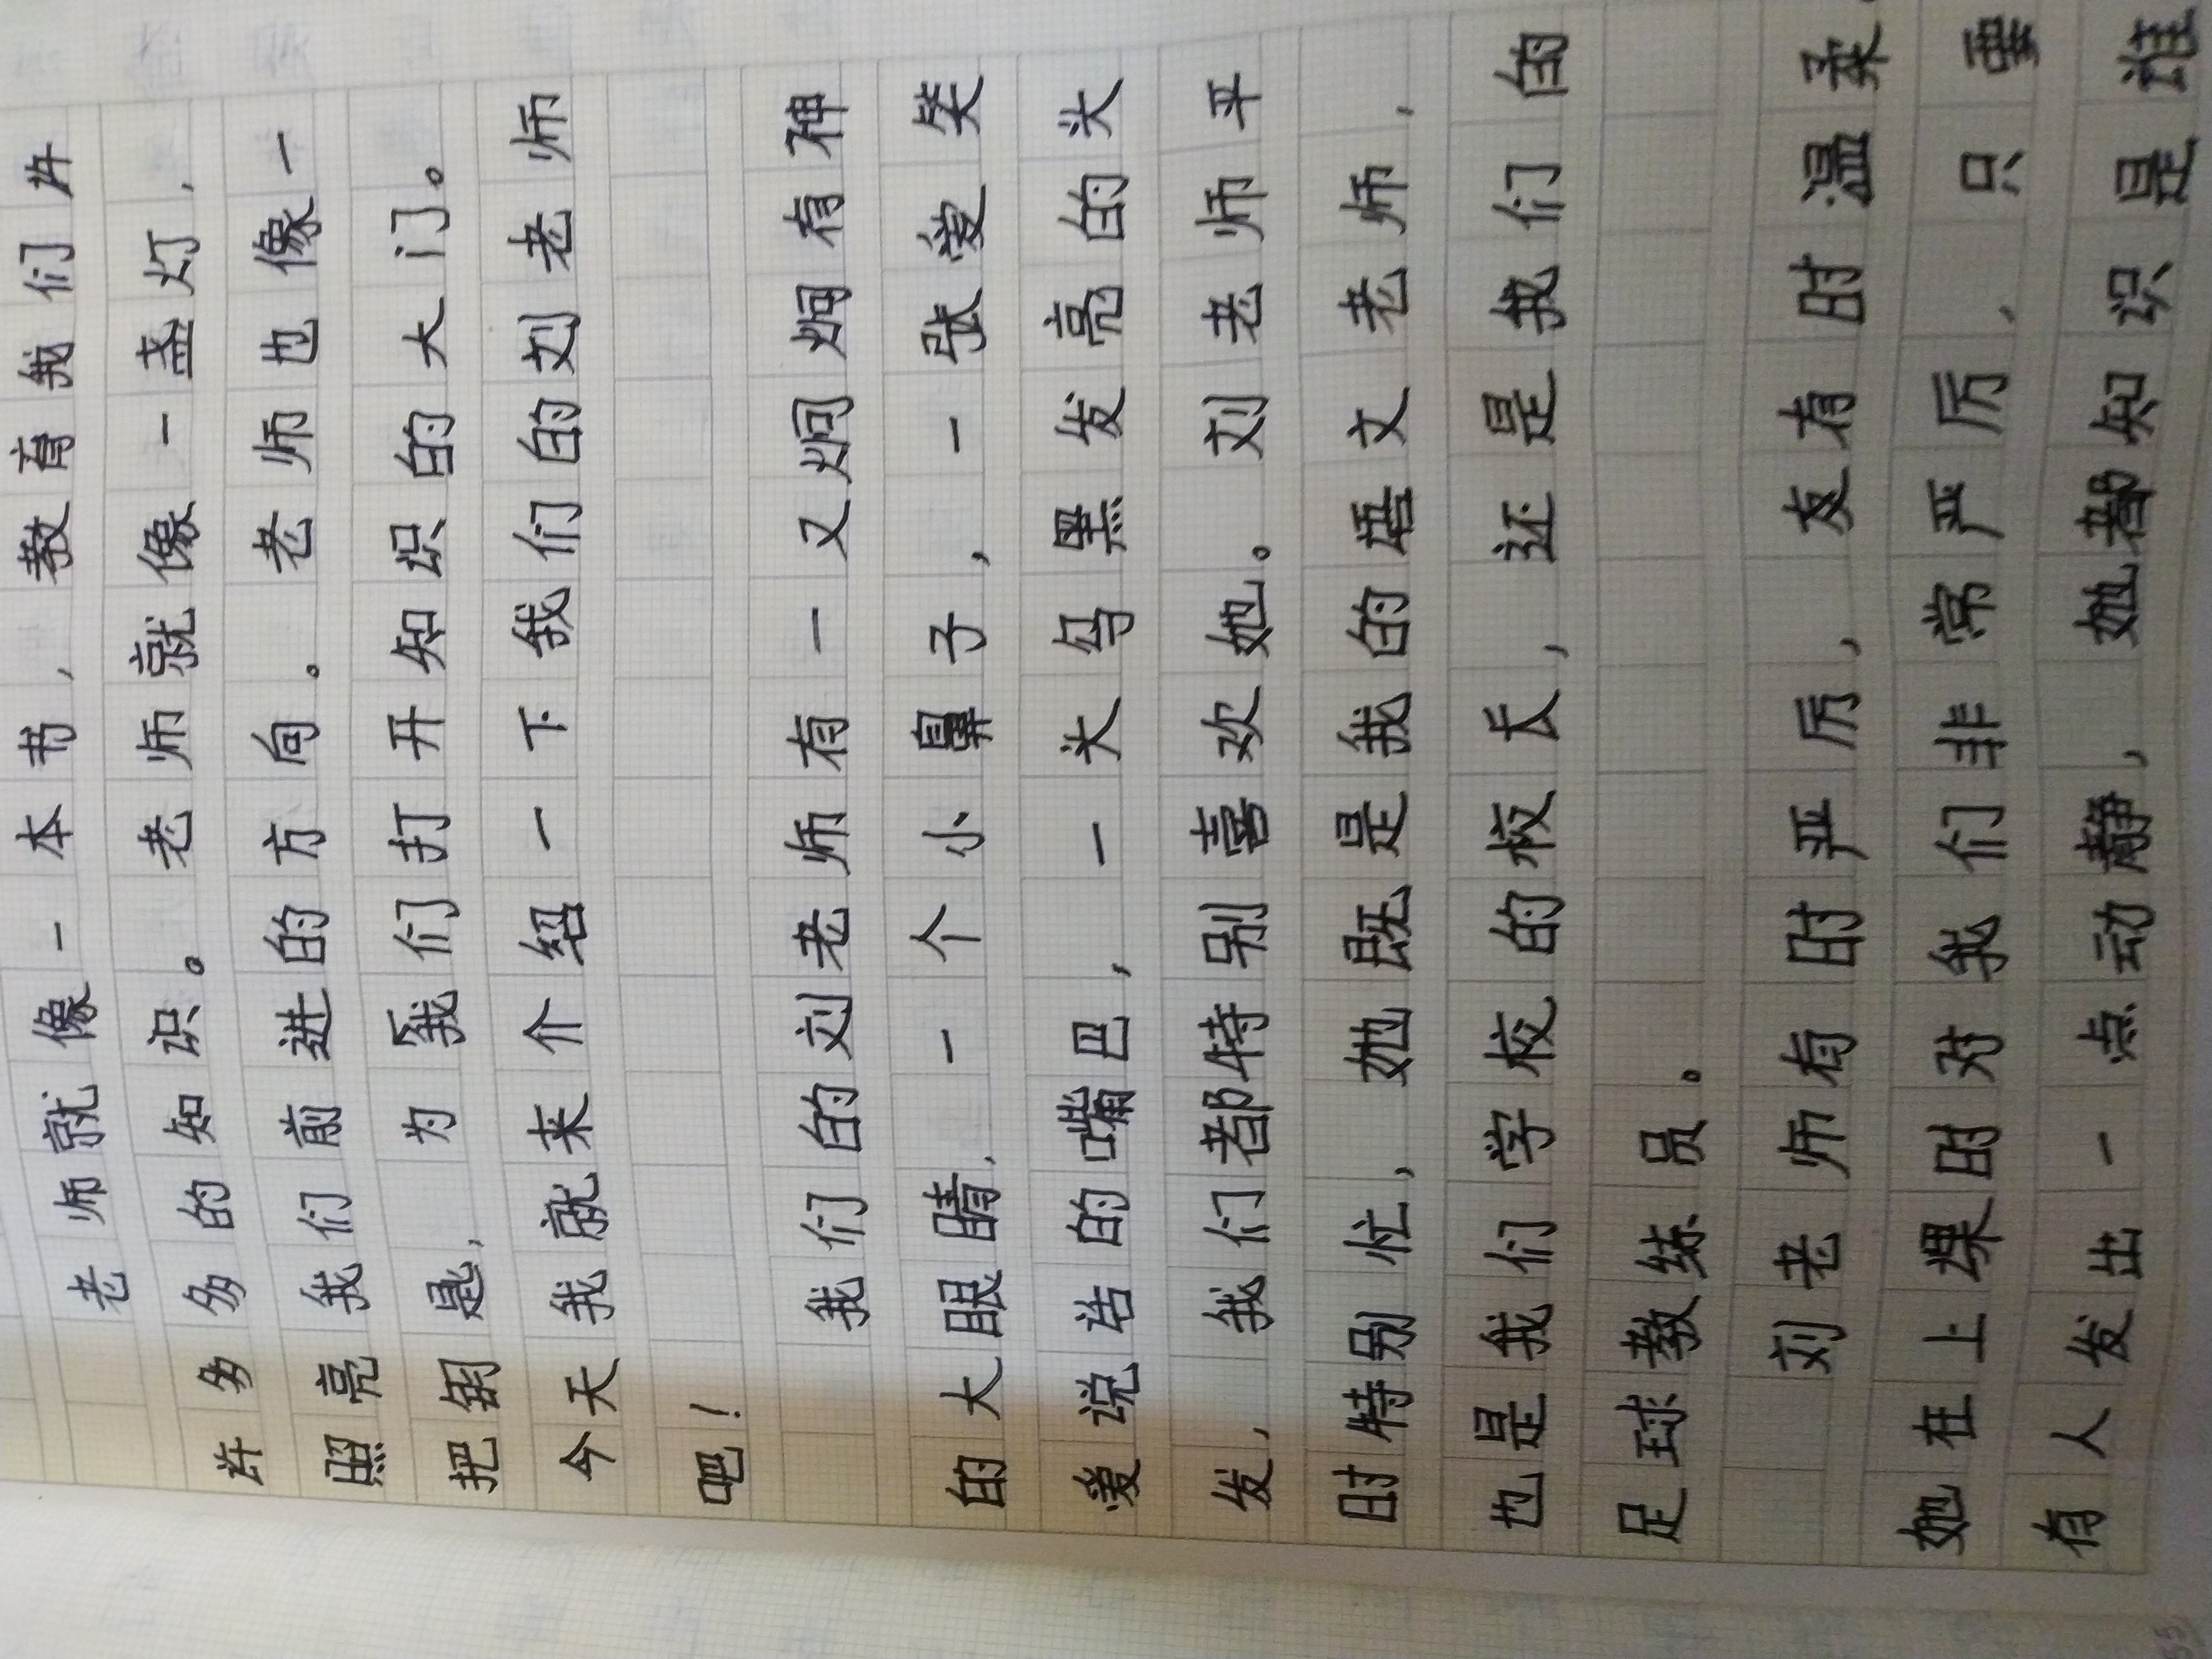 老师就像一本书,教育我们许
许多多的知识。老师就像一盏灯,
照亮我们前进的方向。老师也像一
把钥是,为我们打开知识的大门。
今天我就来介绍一下我们的刘老师
吧!
我们的刘老师有一又炯炯有神
的大眼睛,一个小鼻子,一张爱笑
爱说话的嘴巴,一头乌黑发亮的头
发,我们都特别喜欢她。刘老师平
时特别忙,她既是我的语文老师,
也是我们学校的校长,还是我们的
足球教练员。
刘老师有时严厉,友有时温柔。
她在上课时对我们非常严厉,只要
有人发出一点动静,她都知识是谁